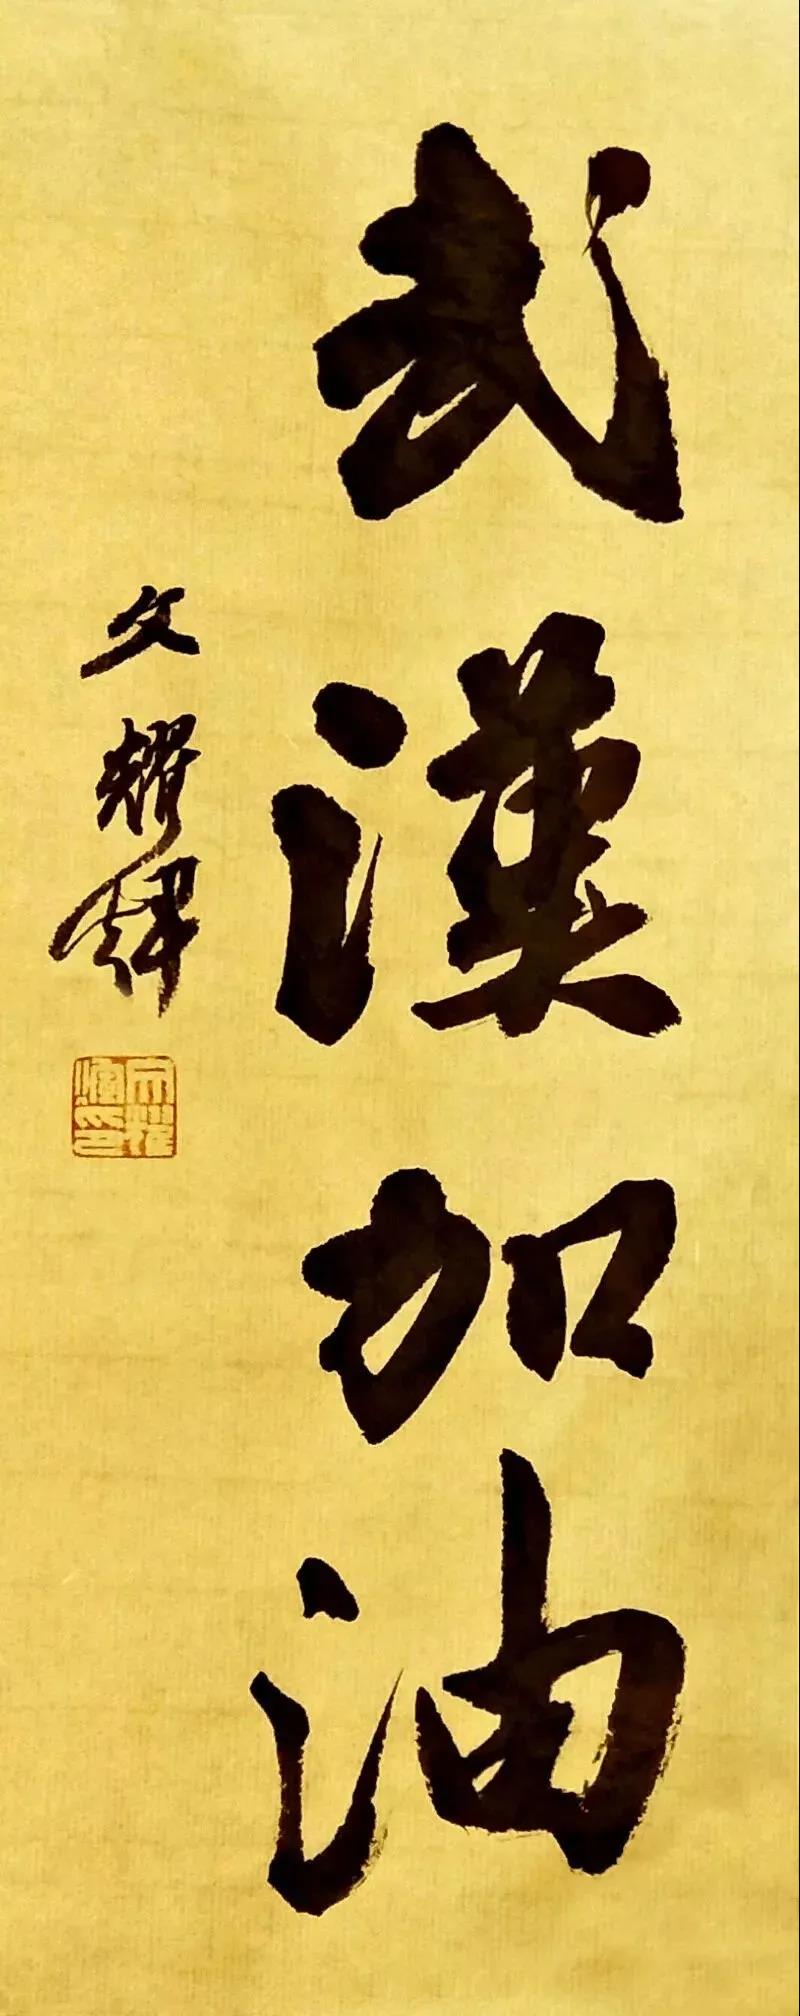 武漢加油
文耀鐸